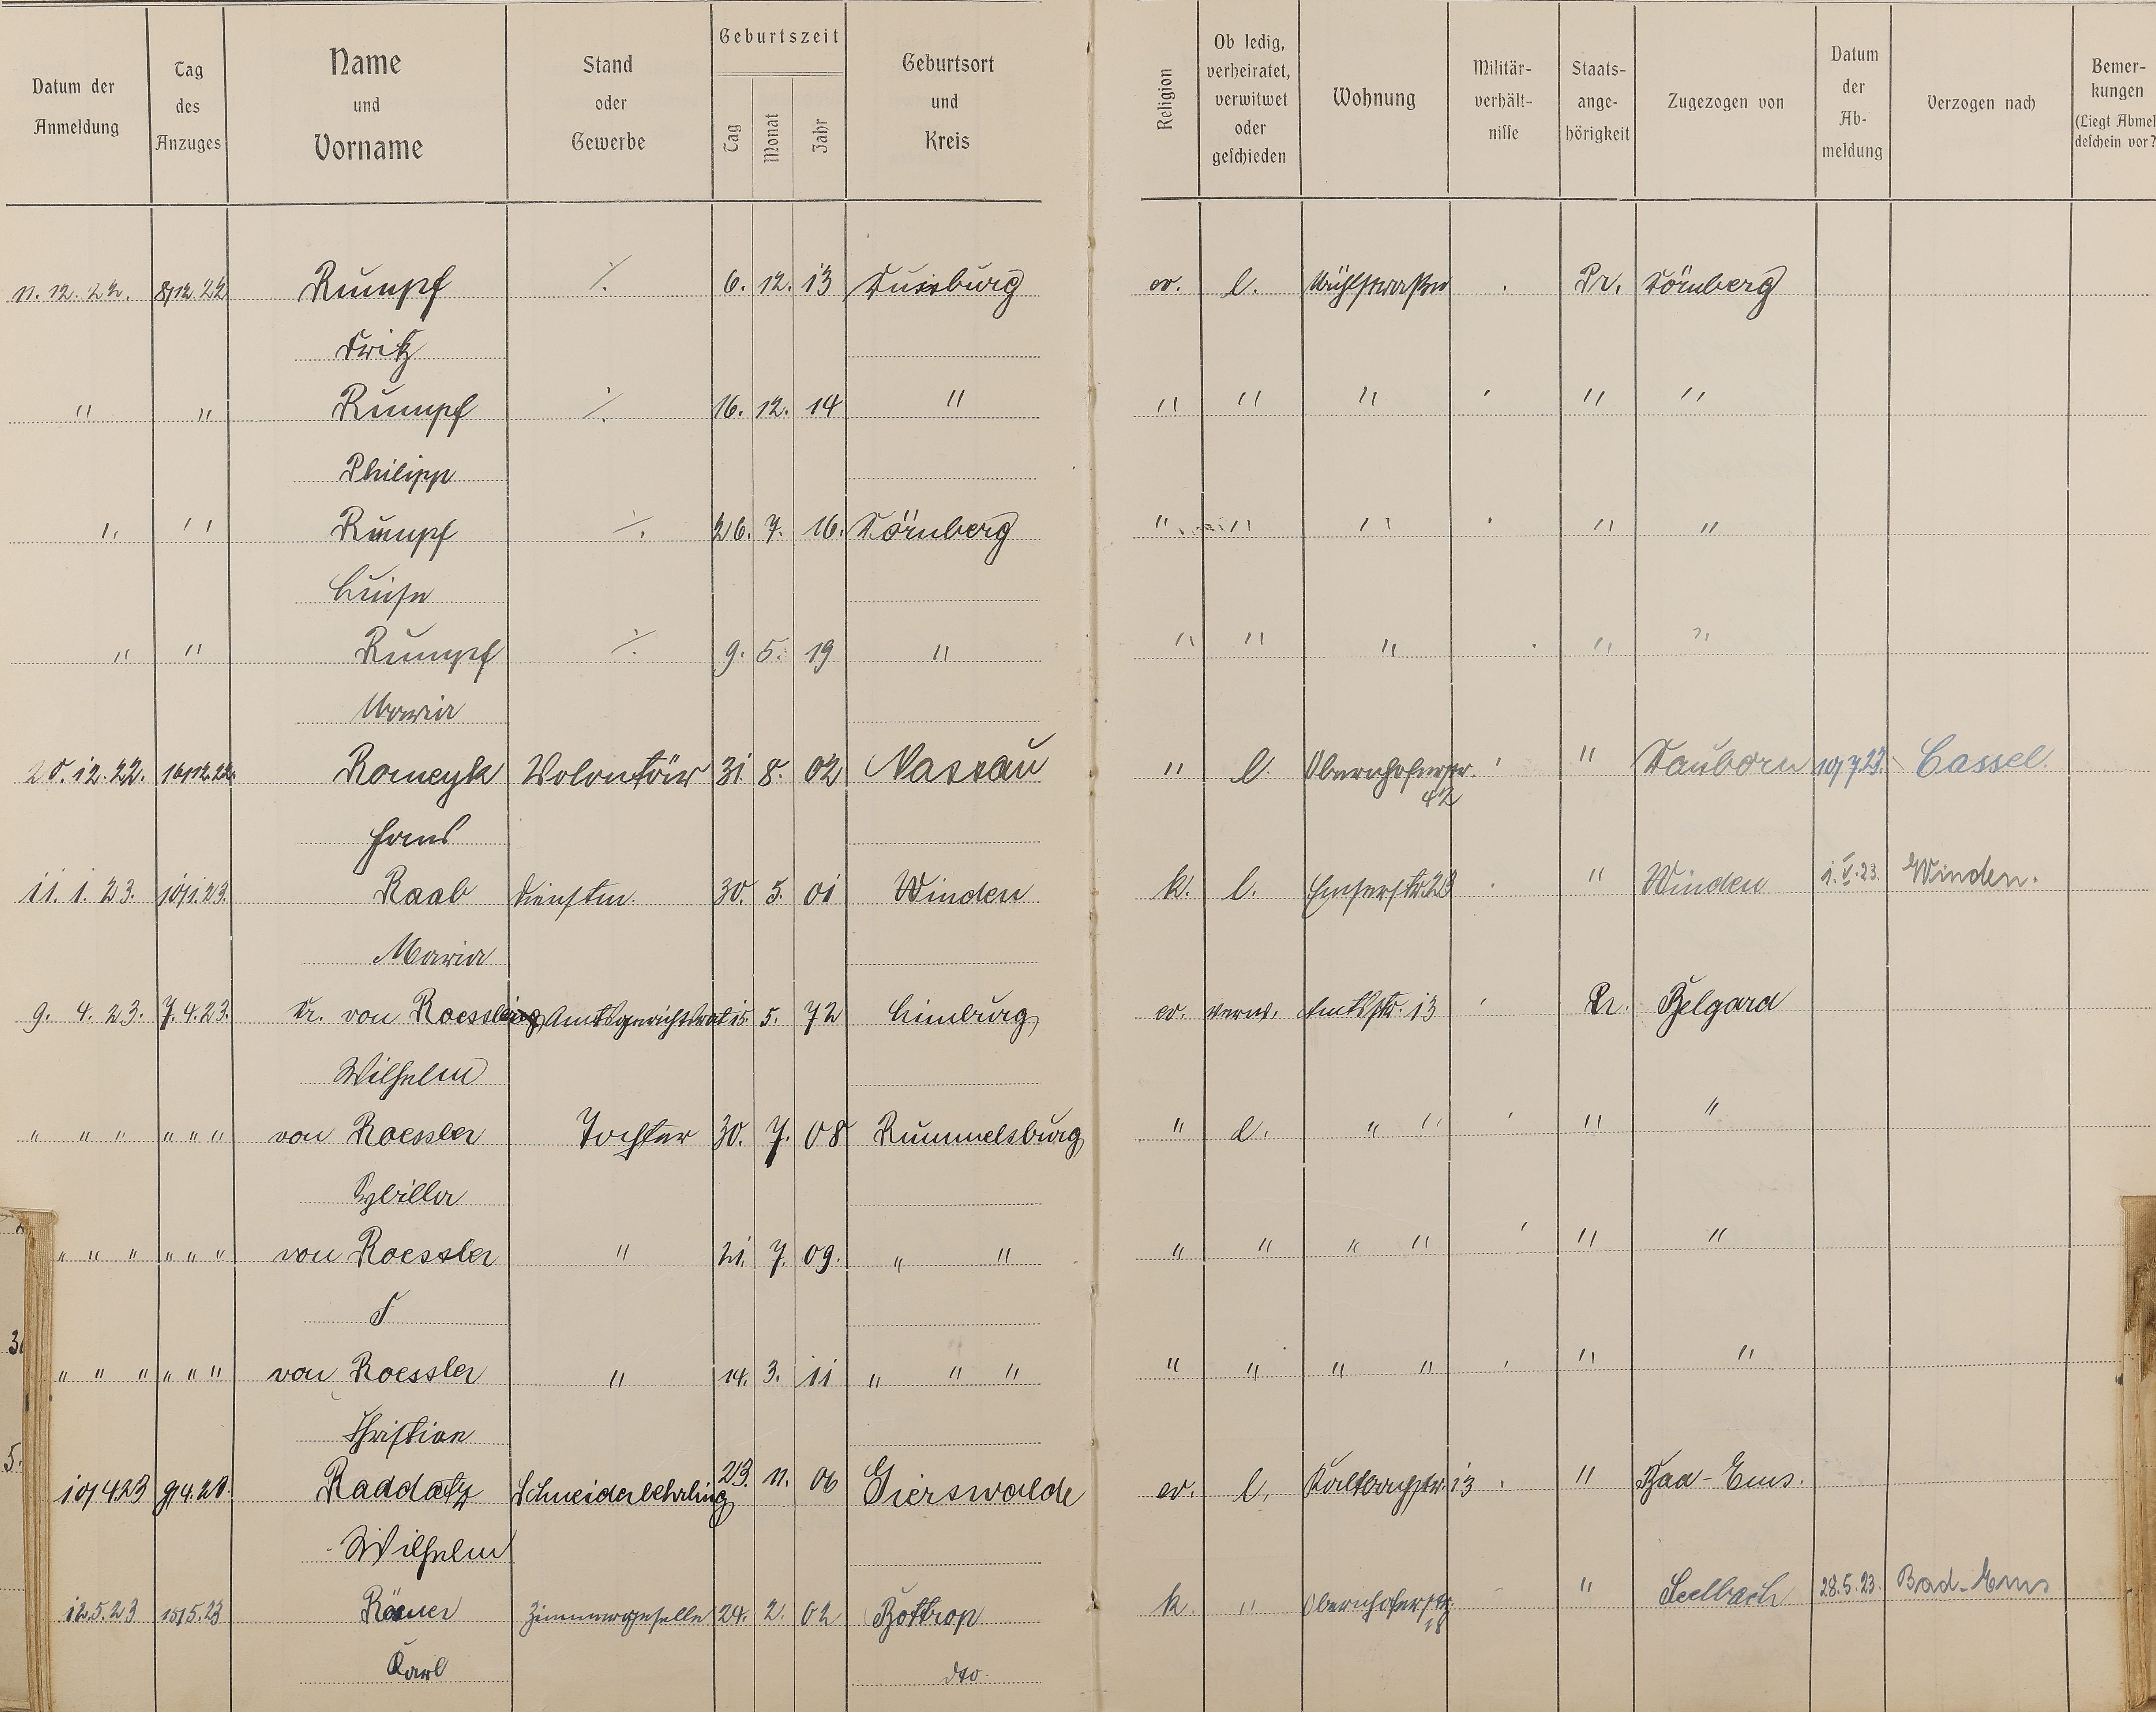 Datum der Anmeldung | Tag des Anzuges | Name und Vorname | Stand oder Gewerbe | Geburtszeit Tag Monat Jahr | Geburtsort und Kreis | Religion | Ob ledig, verheiratet, verwitwet oder geschieden | Wohnung | Militär-verhält-nisse | Staats-ange-hörigkeit | Zugezogen von | Datum der Ab-meldung | Verzogen nach | Bemer-kungen (Liegt Abmel deschein vor?
11. 12. 22. 8/12. 22 Rumpf ·/. 6. 12. 13 Duisburg ev. l. Mühlstraße Pr. Dörnberg
Fritz
" " Rumpf ·/. 16. 12. 14 " " " " " "
Philipp
" " Rumpf ·/. 26. 7. 16. Dörnberg " " " " "
Luise
" " Rumpf ·/. 9. 5. 19 " " " " " "
Maria
20. 12. 22. 16/12. 22. Romeyk Volontär 31 8. 02 Nassau " l. Obernhoferstr. " Dauborn 10/7 23. Cassel.
42
Hans
11. 1. 23. 10/1. 23. Raab Dienstm. 30. 5. 01 Winden k. l. Emserstr. 23 " Winden 1. V. 23. Winden.
Maria
9. 4. 23. 7. 4. 23. Dr. von Roessler Amtsgerichtsrat 15. 5. 72 Limburg ev. verw. Amtsstr. 13 Pr. Belgard
Wilhelm
" " " " " " von Roessler Tochter 30. 7. 08 Rummelsburg " l. " " " "
Sybilla
" " " " " " von Roessler " 21. 7. 09. " " " " " " " "
" " " " " " von Roessler " 14. 3. 11 " " " " " " " " "
Christian
10/4 23 9/4. 20. Raddatz Schneiderlehrling 23. 11. 06 Gierswalde ev. l. Kaltbachstr. 13 " Bad-Ems.
Wilhelm
12. 5. 23 10/5. 23 Römer Zimmergeselle 24. 2. 02 Bottrop k " Obernhoferstr. " Seelbach 28. 5. 23. Bad-Ems
18
Karl dto.